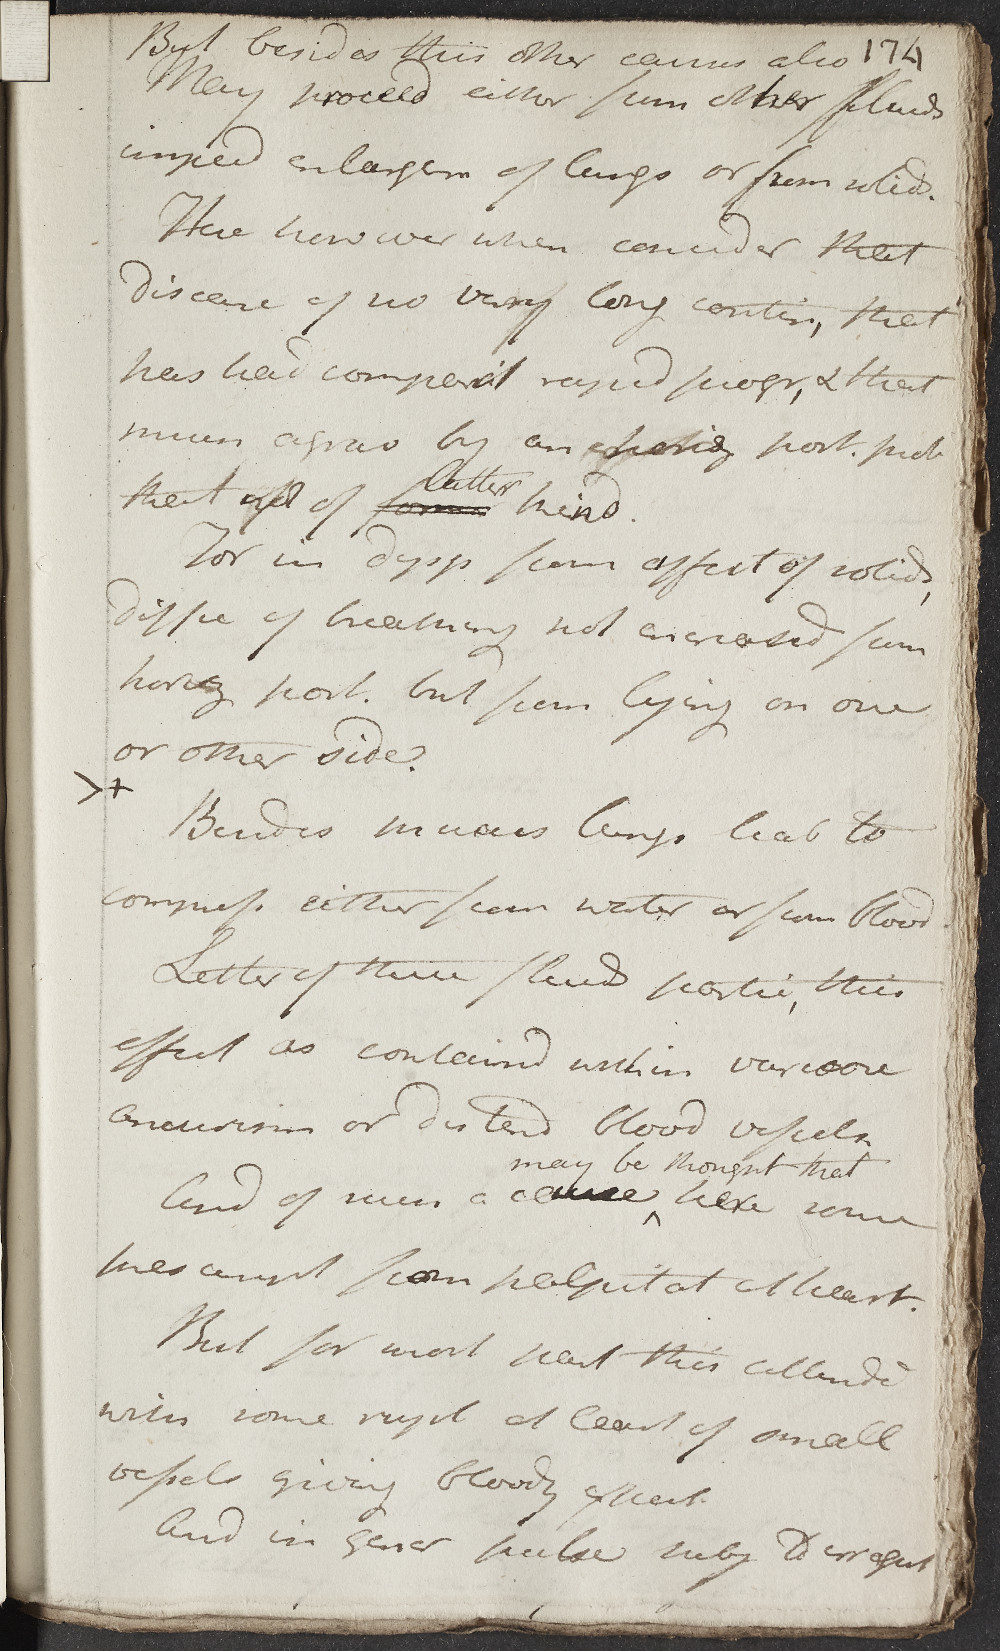 174
But besides this other causes also
May proceed either from other fluids
imped enlargem of lungs or from solids.
Here however when consider that
disease of no very long contin, that
has had comparat rapid progr, & that
much agrav by an horiz post. prob
that aff of latter kind.
For in dysp from affect of solids,
diffic of breathing not increased from
horiz post. but from lying on one
or other side.
>+
Besides mucus lungs liab to
compress. either from water or from blood.
Latter of these fluids partic, this
effect as contained within varicose
aneurism or distend blood vessels.
may be thought that
And of such a cause ^ here some
presumpt from palpitat at heart.
But for most part this attended
with some rupt at least of small
vessels giving bloody expect.
And in gener pulse subj to irregul